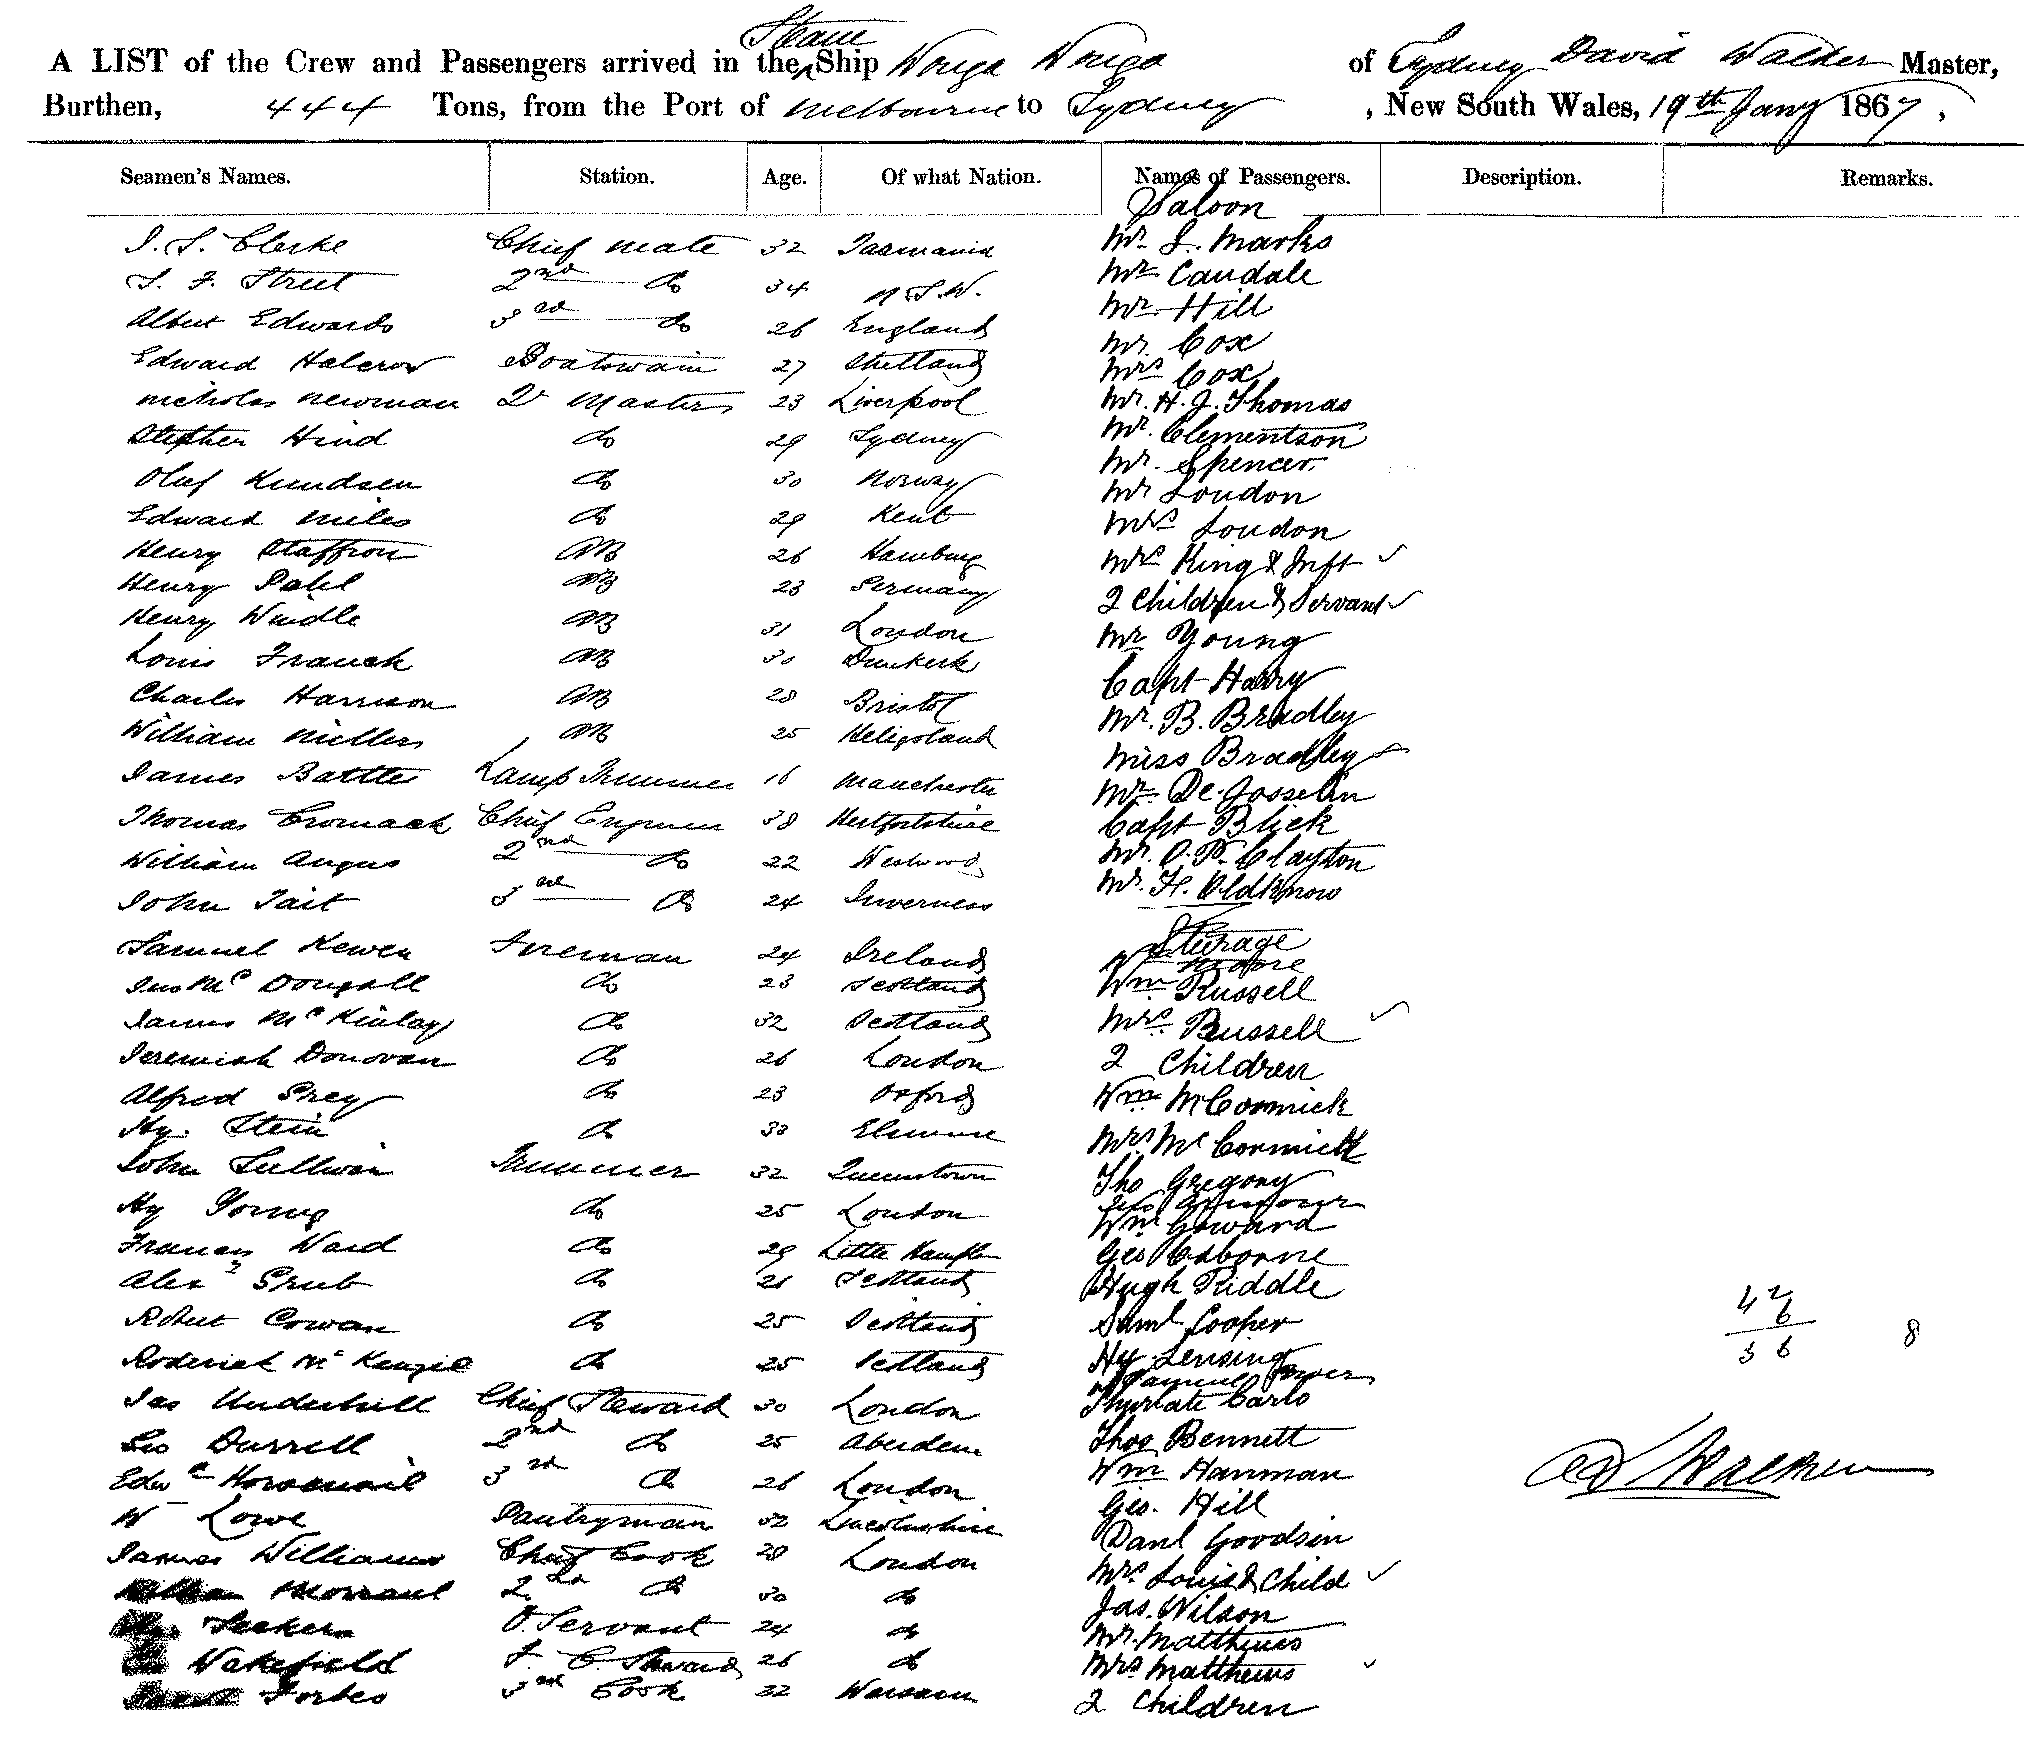 A LIST of the Crew and Passengers arrived in the Steam Ship Wonga Wonga of Sydney David Walker Master,
Burthen, 444 Tons, from the Port of Melbourne to Sydney , New South Wales, 19th Jany 1867,
Seamen's Names. Station. Age. Of what Nation. Names of Passengers. Description. Remarks.
Saloon
J. S. Clarke Chief Mate 32 Tasmania Mr S. Marks
S. F. Street 2nd do 34 N S.W. Mr Caudale
Albert Edwards 3rd do 26 England Mr Hill
Edward Halcrow Boatswain 27 Shetland Mr Cox
Mrs Cox
Nicholas Newman Qr Master 23 Liverpool Mr. H. J. Thomas
Stephen Hind do 29 Sydney Mr. Clementson
Mr. Spencer
Oluf Knudsen do 30 Norway Mr Loudon
Edward Miles do 29 Kent Mrs Loudon
Henry Staffron AB 26 Hamburg Mrs King & Inft
Henry Dahl AB 23 Germany 2 Children & Servant
Henry Windle AB 31 London Mr Young
Louis Franck AB 30 Dunkerk Capt Harry
Charles Harrison AB 28 Bristol Mr. B. Bradley
William Millers AB 25 Heligoland Miss Bradley
James Battle Lamp Trimmer 16 Manchester Mr. De Josselin
Thomas Cromack Chief Engineer 38 Hertfortshire Capt Blick
William Angus 2nd do 22 Westwood Mr. O. P. Clayton
John Tait 3rd do 24 Inverness Mr. H. Oldknow
Steerage
Samuel Kewen Fireman 24 Ireland Moore
Jno Mc Dougall do 23 Scotland Wm Russell
James Mc Kinlay do 32 Scotland Mrs Russell
Jeremiah Donovan do 26 London 2 Children
Alfred Grey do 23 Oxford Wm McCormick
Hy. Stein do 30 Mrs Mc Cormick
John Sullivan Trimmer 32 Queenstown Tho Gregory
Hy Young do 25 London Wm Goward
Francis Ward do 29 Little Hampton Geo Osborne
Alexr Grub do 21 Scotland Hugh Riddle
Robert Cowan do 25 Scotland Saml Cooper
42
6
36 8
Roderick Mc Kenzie do 25 Scotland Hy. Lensing
Samuel
Jas Underhill Chief Steward 30 London Carlo
Geo Durrell 2nd do 25 Aberdeen Thos Bennett
Edwd Horsenail 3rd do 26 London Wm Hanman
D Walker
W Lowe Pantryman 32 Lincolnshire Geo. Hill
Danl Goodsin
James Williams Chief Cook 28 London Mrs Louis & Child
William Morraul 2nd do 30 do Jas. Wilson
Seekers O. Servant 24 do Mr. Matthews
Wakefield F. C. Steward 26 do Mrs Matthews
Forbes 3rd Cook 22 Warsaw 2 Children